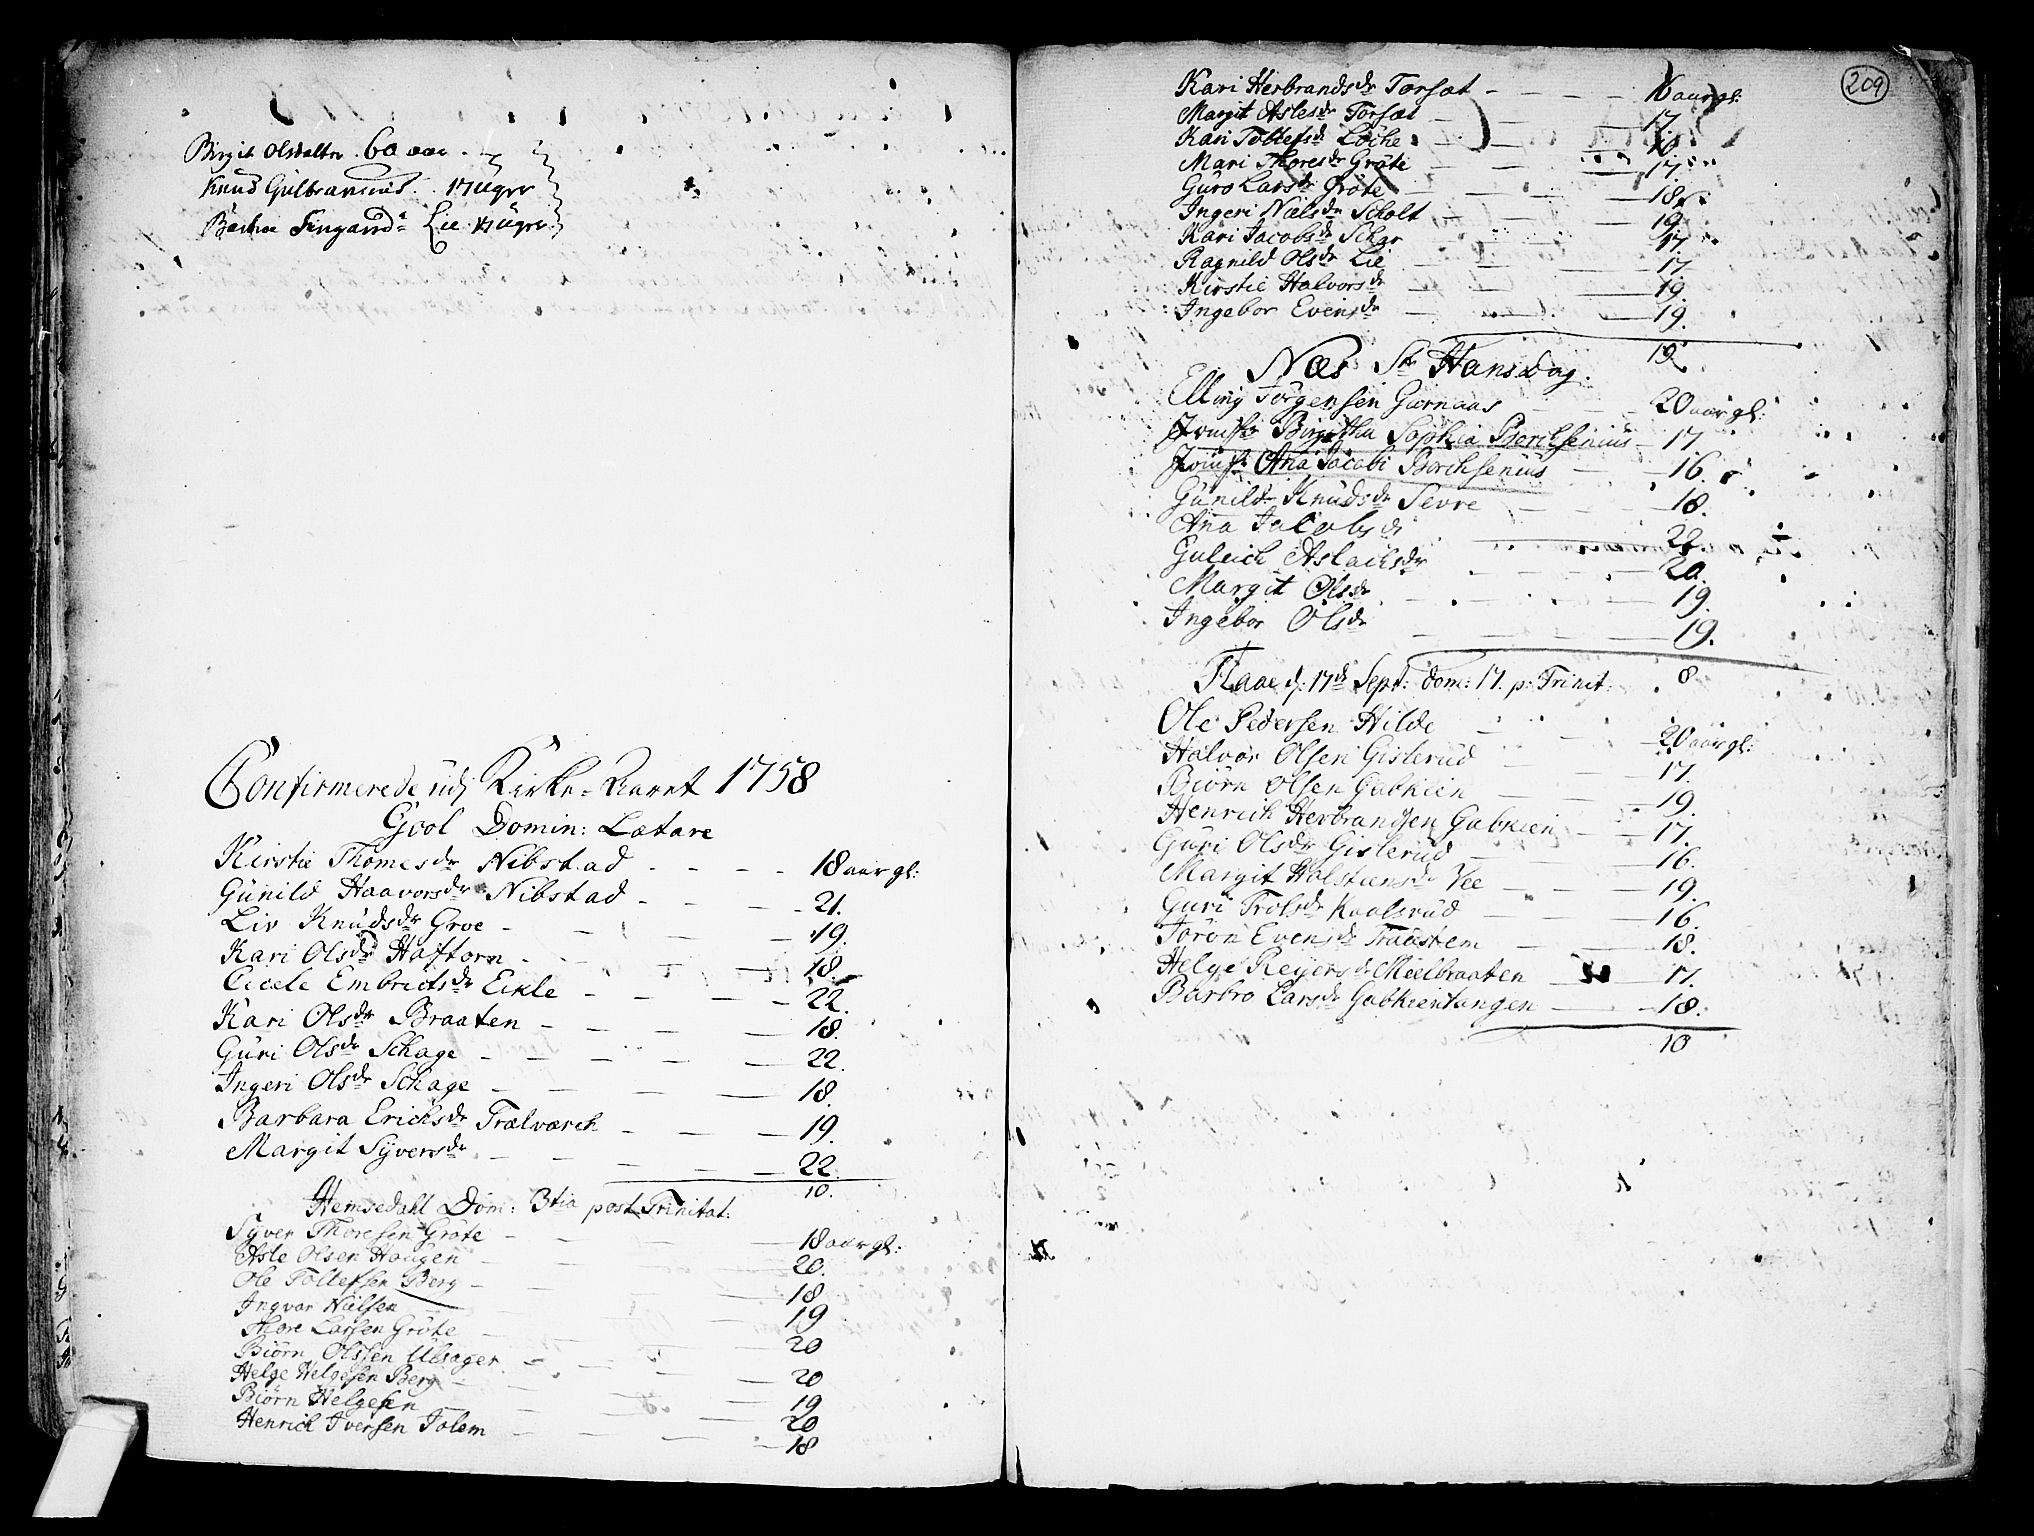 Birgit Olsdaltr. 60 aar.
Knud Gulbransens. 17 Uger
Lie Uger
Confirmerede udj Kirke-Aaret 1758
Gool Domin: Lætare
Kirstie Thomesdr Nibstad 18 aar gl:
Gunild Haavorsdr Nibstad 21.
Liv Knudsdr Groe 19.
Kari Olsdr Haftorn 18.
Cicele Embrictsdr Eikle 22.
Kari Olsdr Braaten 18.
Guri Olsdr Schage 22.
Ingeri Olsdr Schage 18.
Barbara Ericksdr Trælværch 19.
Margit Syversdr 22.
10.
Hemsedahl Dom: 3tia post Trinitat:
Syver Thoresen Gröte 18 aar gl:
Asle Olsen Haugen 20.
Ole Tollefsen Berg 18
Ingvar Nielsen 19
Thore Larsen Gröte 20
Biörn Olssen Ulsager 20
Helge Helgesen Berg 19
Biörn Helgesen 20
Henrich Iversen Tolem 18
209
Kari Herbrandsdr Torsæt 16 aar gl:
Margit Aslesdr Torsæt 17.
Kari Tollefsdr Löche
Mari Thoresdr Gröte 17.
Guro Larsdr Gröte 18.
Ingeri Nielsdr Scholt 19.
Kari Jacobsdr Schar 17.
Ragnild Olsdr Lie 17
Kirstie Halvorsdr 19.
Ingebor Evensdr 19.
19.
Næs St Hansdag.
Elling Jörgensen Garnaas 20 aar gl:
Jomfr Birgitha Sophia Borchsenius 17
Jomfr Ana Jacobi Borchsenius 16.
Gunild Knudsdr Sevre 18.
Ana Jacobsdr 22.
Guleich Aslachsdr 20.
Margit Olsdr 19.
Ingebor Olsdr 19.
8
Flaae d: 17d Sept: dom: 17. p: Trinit:
Ole Pedersen Hilde 20 aar gl:
Halvor Olsen Gislerud 17.
Biörn Olsen Gabkien 19.
Henrich Herbrandsen Gabkien 17.
Guri Olsdr Gislerud 16.
Margit Holstiensdr Vee 19.
Guri Trolsdr Kaalsrud 16.
Jörön Evensdr Traustem 18.
Helge Reyersdr Mielbraaten 17.
Barbro Larsdr Gabkientangen 18.
10